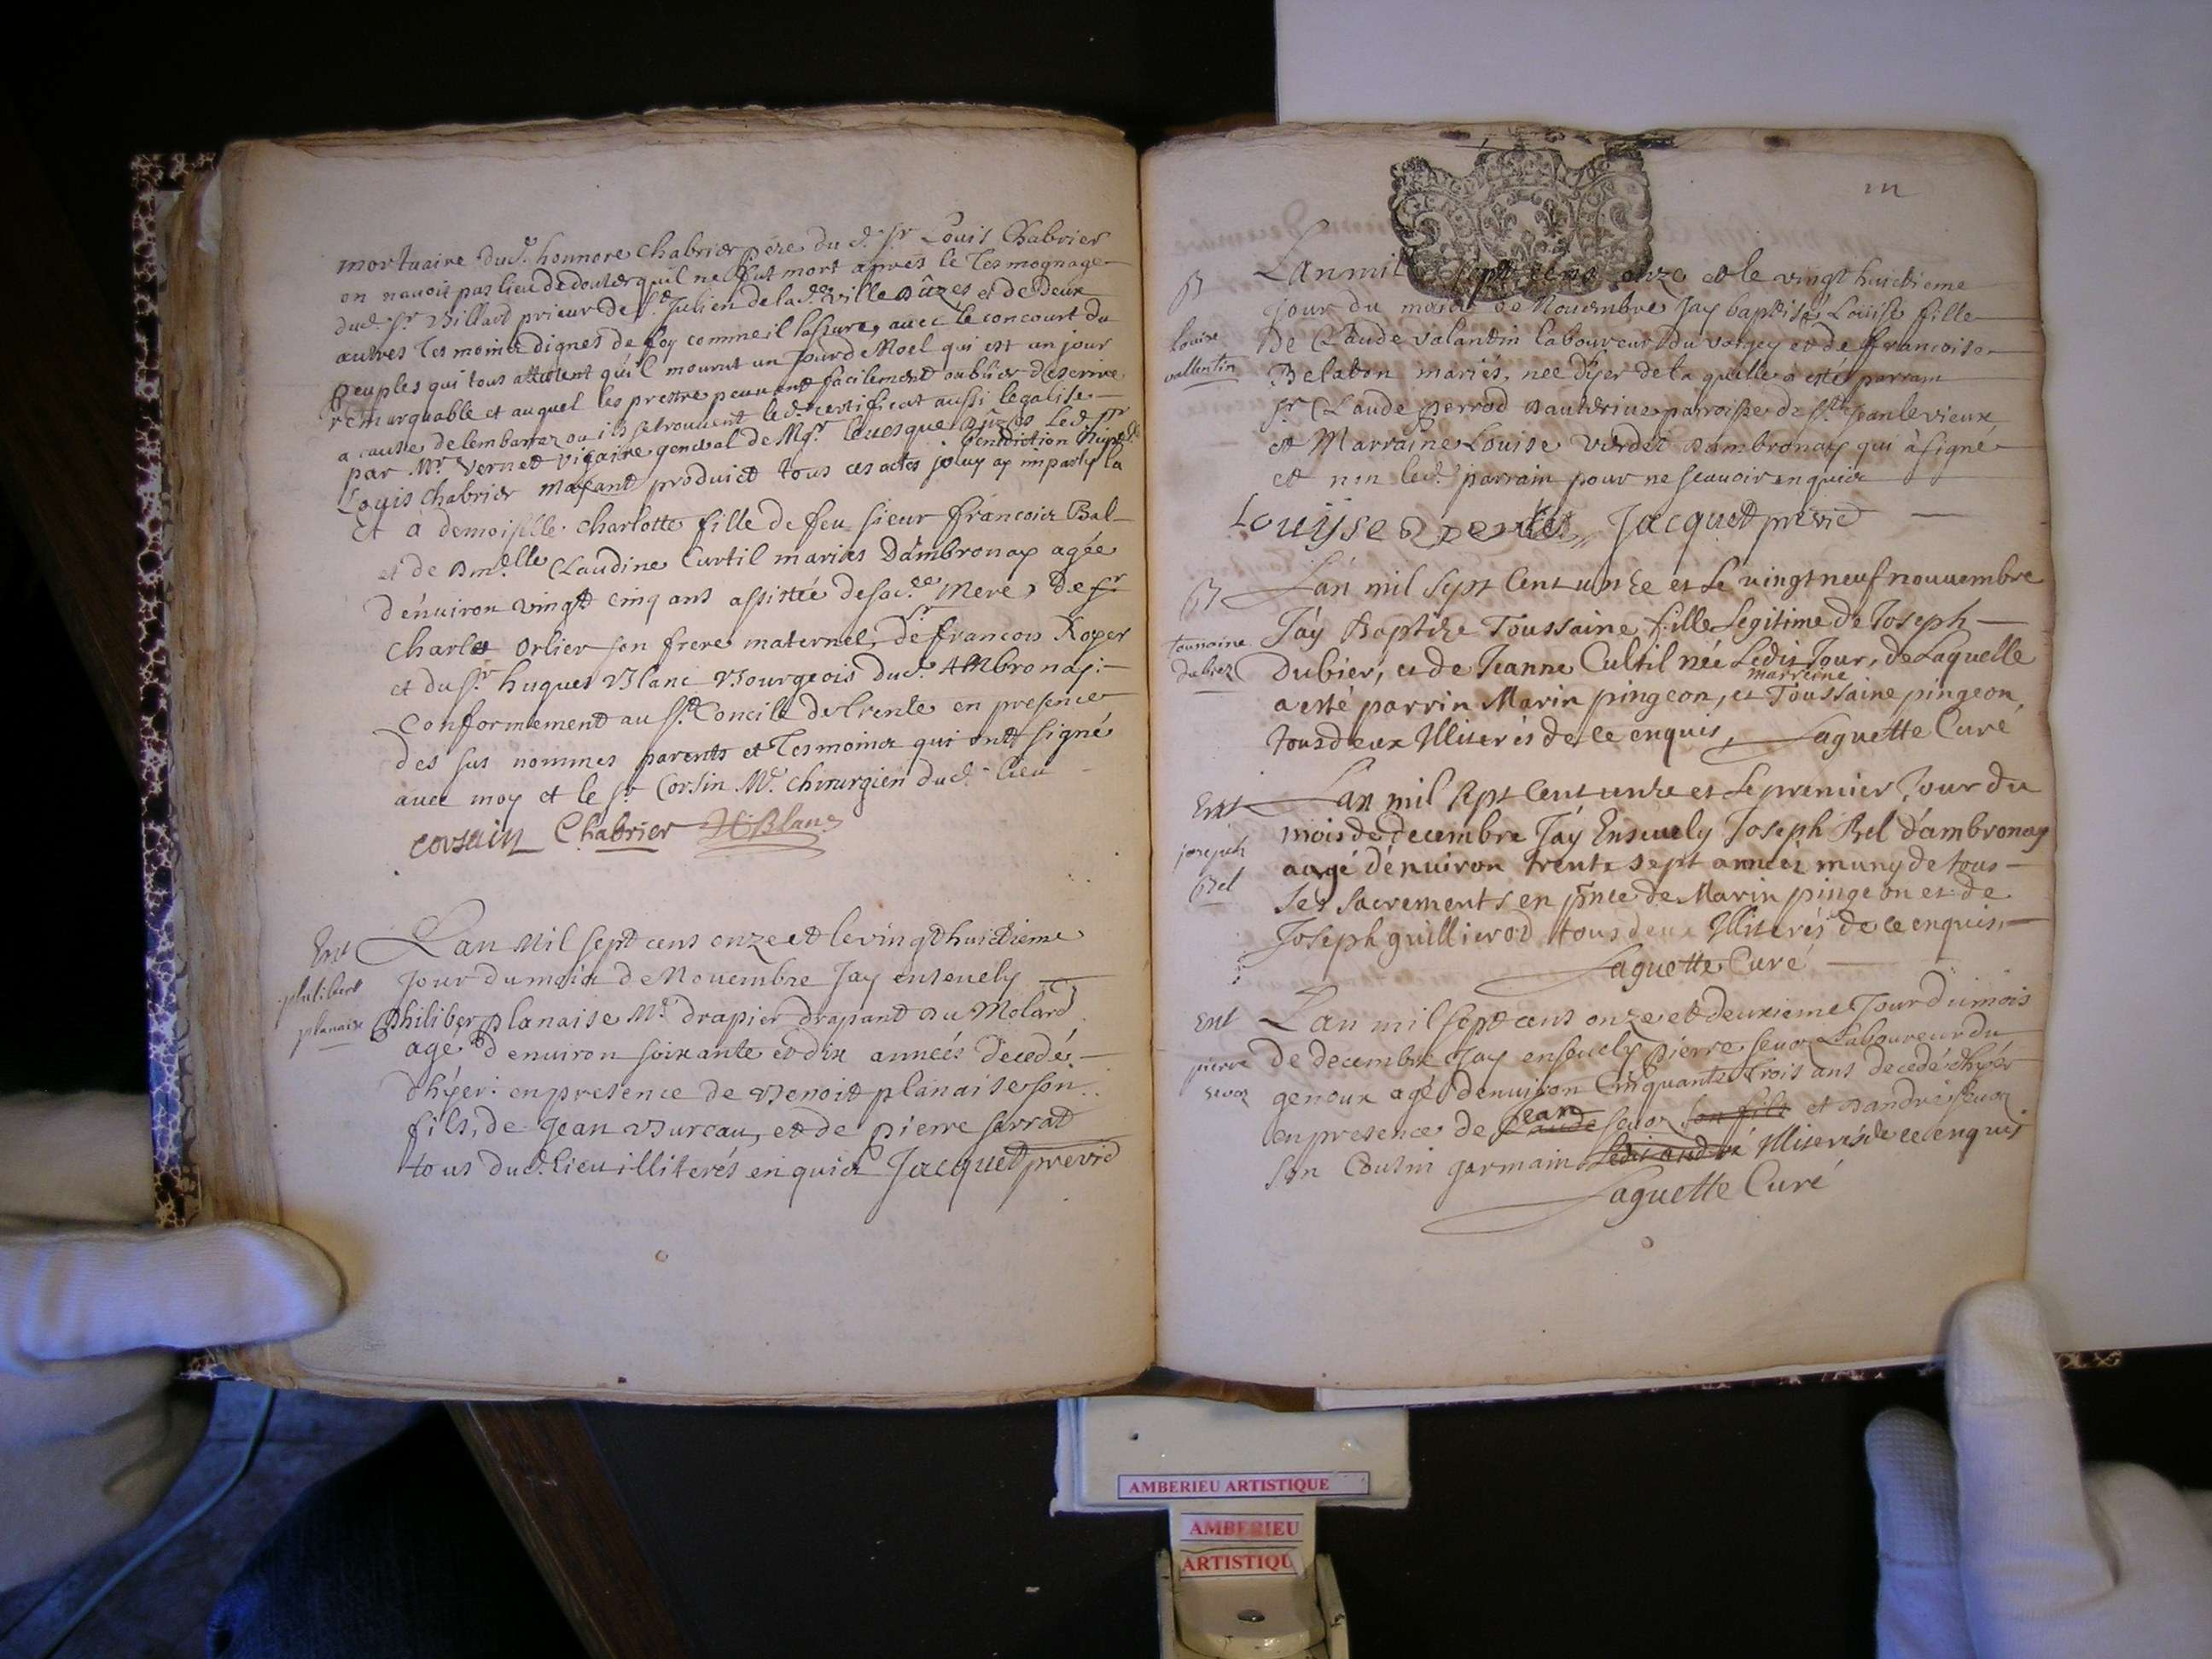 mortuaire dud. honnore Chabrier père du d. Sr Louis Chabrier
on navoit pas lieu de douter quil ne fut mort apres le tesmognage
dud. Sr Billard prieur de St Julien de lad. ville d'uzes et de deux
autres tesmoins dignes de foy comme il lassure, avec le concourt du
peuples qui tous attestent qu'il mourut un jour de Noel qui est un jour
remarquable et auquel les prestre peuvent facilement oublier d'escrire
a cause de lembarraz ou ils se trouvent led. certificat aussi legalise
par Mr. Vernet vicaire general de Mgr. levesque d'uzes Led Sr
Louis Chabrier mayant produict tous ces actes je luy ay imparty la
benediction nupt.
Et a demoiselle Charlotte fille de feu sieur francois Bal
et de dmelle Claudine Curtil mariés Dambronay agée
d'environ vingt cinq ans assistée de sad. Mere, de Sr
Charle Orlier son frere maternel, de Sr francois Royer
et du Sr hugues Blanc Bourgeois dud. Ambronay
conformement au St. Concile de trente en presence
des sus nommes parents et tesmoins qui ont signé
avec moy et le Sr Corsin Me. chirurgien dud. lieu
corsain Chabrier H Blanc
Ent
philibert
planaise
Lan Mil sept cens onze et le vingt huictieme
Jour du mois de Novembre Jay ensevely
Philiber planaise Me. drapier drapant du Molard
agé d'environ soixante et dix années decedé
dhÿer en presence de Benoit planaise son
fils, de Jean Bureau, et de pierre sarrat
tous dud. lieu illiterés enquis Jacquet previc
B
louise
vallentin
Lan mil sept cens onze et le vingt huictieme
jour du mois de Novembre Jay baptisé Louise fille
de Claude valantin laboureur du vorgey et de francoise
Belabon mariés, nee dÿer de la quelle a esté parrain
Sr. Claude perrod dauterive parroisse de St Jean le vieux
et Marraine Louise verdet dambronay qui à signé
et non led. parrain pour ne scavoir enquis
Louyse verdet Jacquet previc
B
toussaine
dubier
Lán mil sept Cent unze et Le vingt neuf nouvembre
Jáy Baptize Toussaine fille Legitime de Joseph
Dubier, et de Jeanne Cultil née Ledit Jour, de Laquelle
a esté parrin Marin pingeon, et marreine Toussaine pingeon
tous deux Illiterés de ce enquis, Laguette Curé
Ent
joseph
Bel
Lan mil sept Cent unze et Le premier Jour du
mois de decembre Jáy Ensevely Joseph Bel d'ambronay
augé d'environ trente sept années muny de tous
Ses Sacrements en pnce de Marin pingeon et de
Joseph guillierod tous deux Illiterés de ce enquis
Laguette Curé
Ent
pierre
sevoz
Lan mil sept cens onze et deuxieme Jour du mois
de decembre Jay ensevely pierre sevoz Laboureur du
genoux agé d'environ Cinquante trois ans decedé dhÿer
en presence de Claude Jean sevoz son fils et d'andré sevoz
son Cousin germain Ledit andré Illiterés de ce enquis
Laguette Curé
AMBERIEU ARTISTIQUE
AMBERIEU
ARTISTIQU